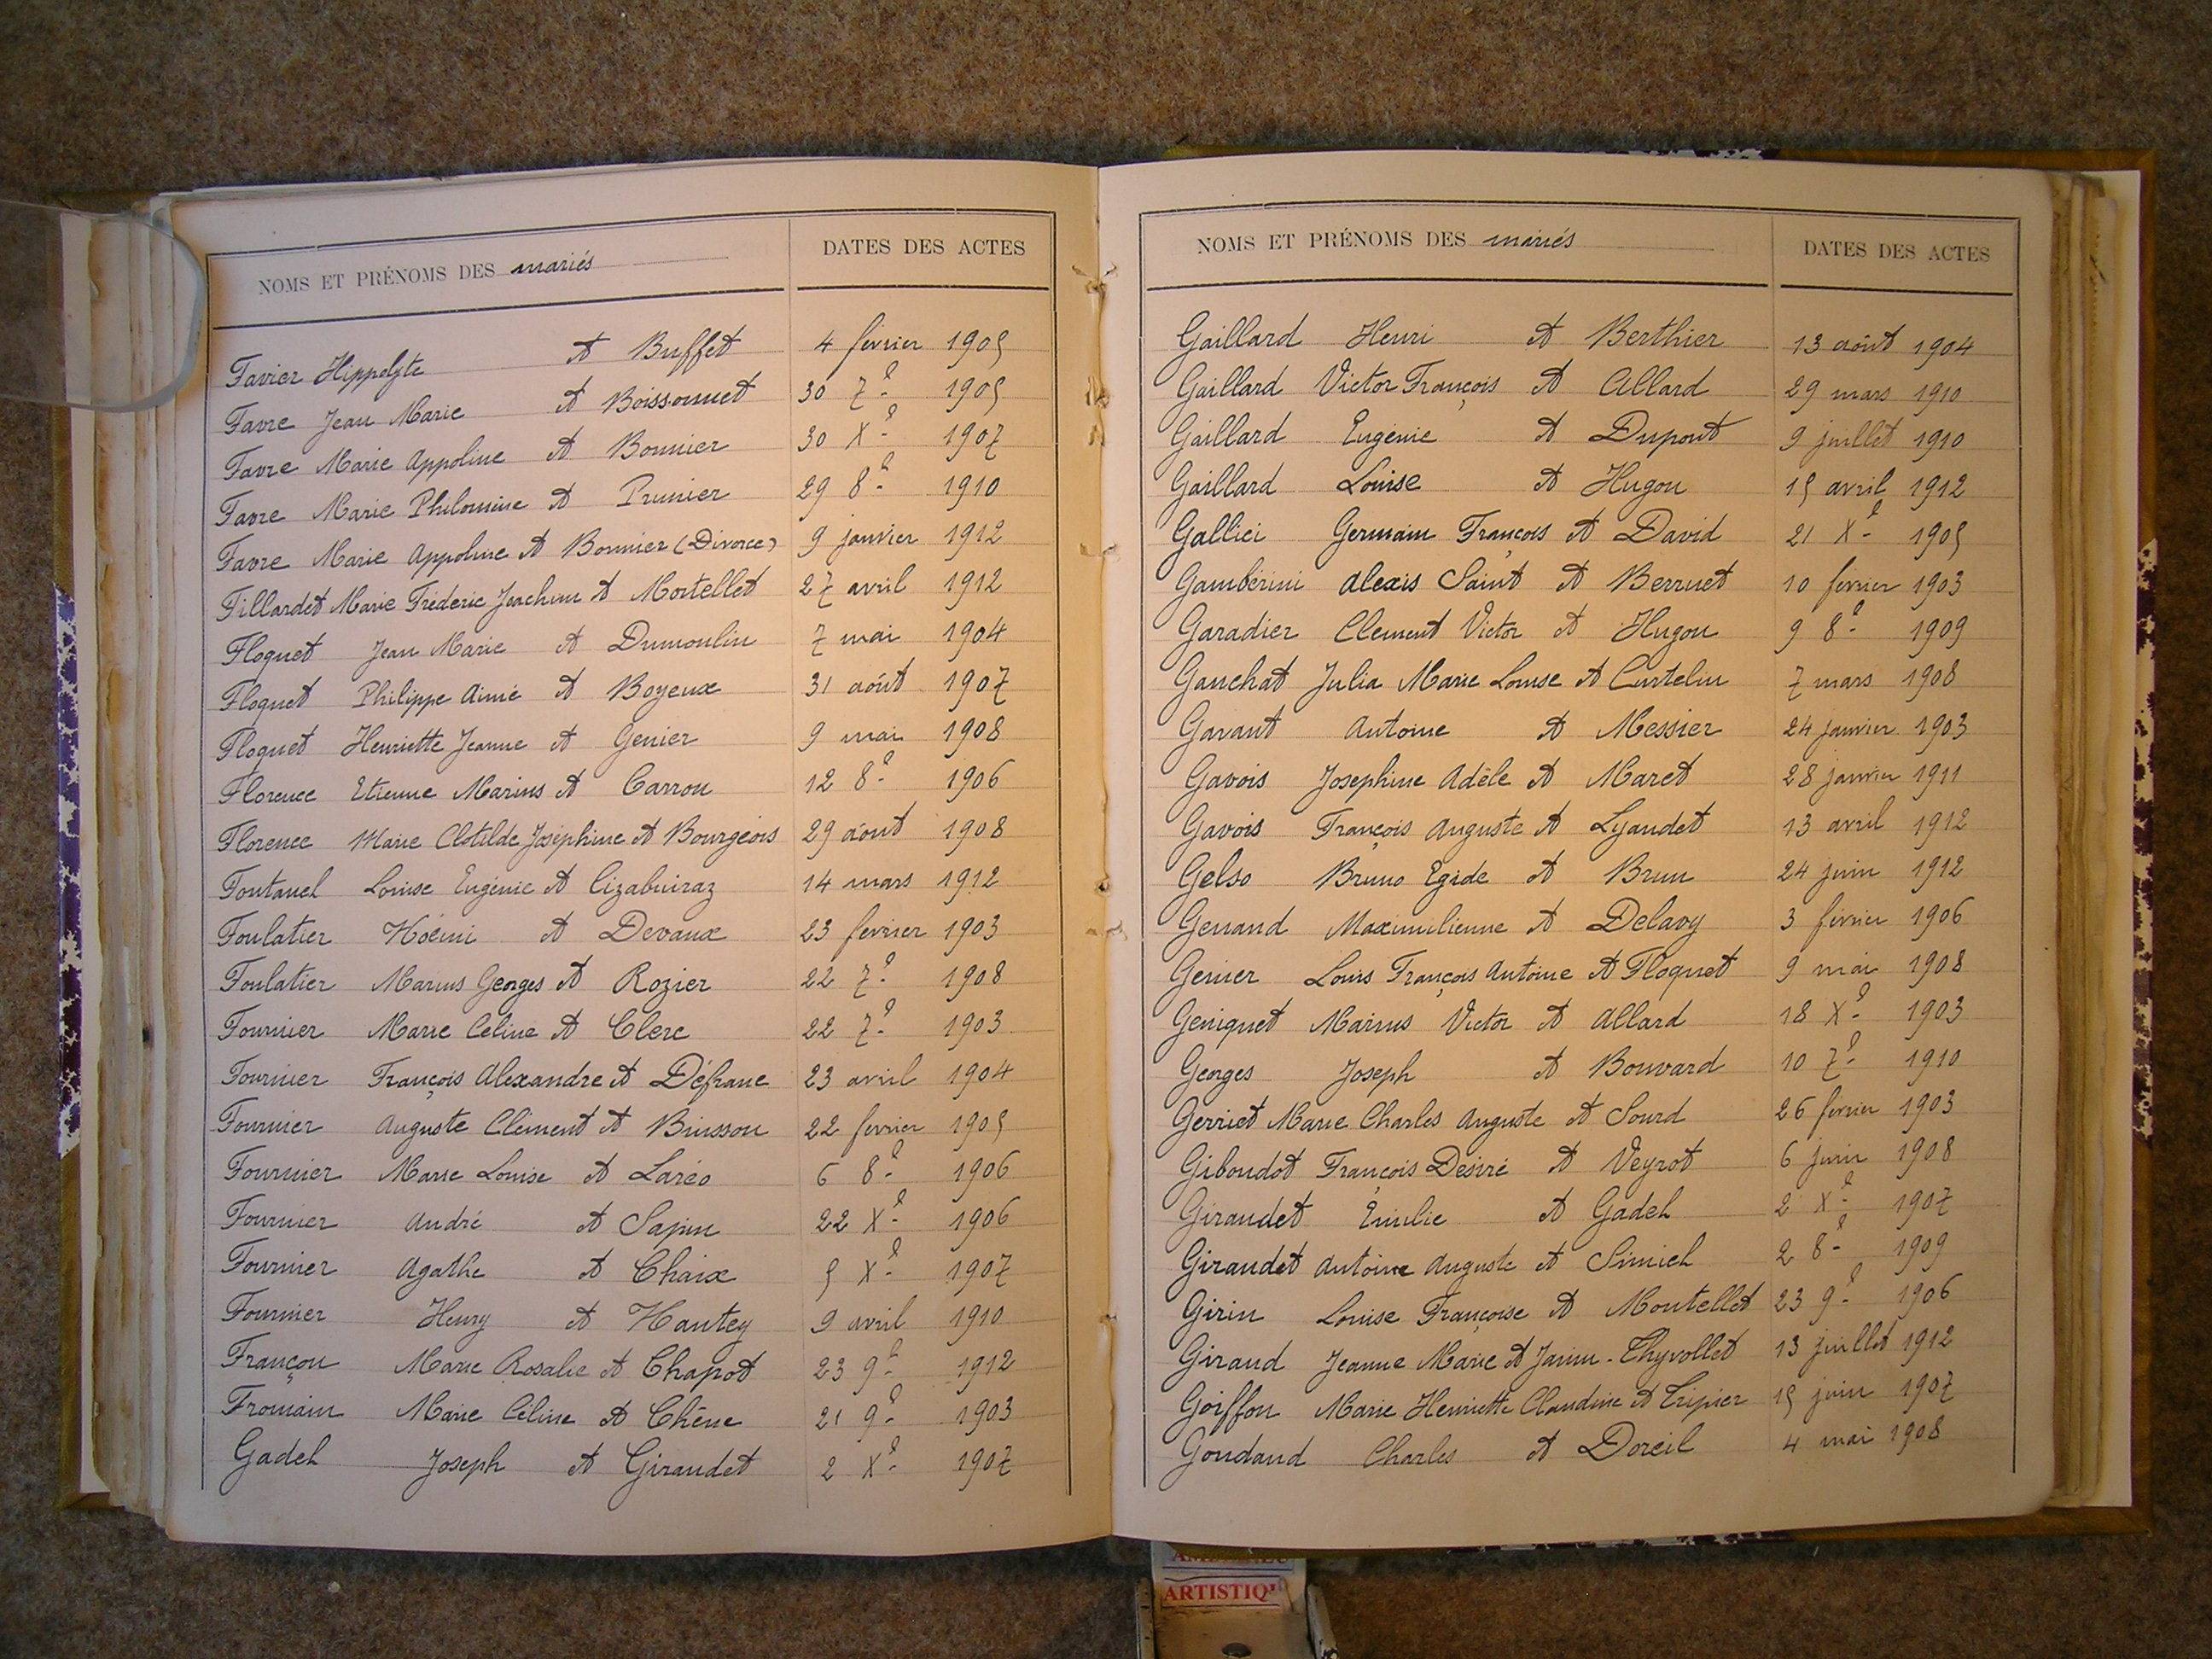 NOMS ET PRÉNOMS DES mariés DATES DES ACTES
Favier Hippolyte et Buffet 4 février 1905
Favre Jean Marie et Boissonnet 30 7e 1905
Favre Marie Appoline et Bonnier 30 Xe 1907
Favre Marie Philomine et Prunier 29 8e 1910
Favre Marie Appoline et Bonnier (Divorce) 9 janvier 1912
Fillardet Marie Fréderic Joachim et Mortellet 27 avril 1912
Floquet Jean Marie et Dumoulin 7 mai 1904
Floquet Philippe Aimé et Boyeux 31 août 1907
Floquet Henriette Jeanne et Genier 9 mai 1908
Florence Etienne Marius et Carron 12 8e 1906
Florence Marie Clotilde Joséphine et Bourgeois 29 août 1908
Fontanel Louise Eugénie et 14 mars 1912
Foulatier Noémi et Devaux 23 février 1903
Foulatier Marius Georges et Rozier 22 7e 1908
Fournier Marie Celine et Clerc 22 7e 1903
Fournier François Alexandre et Défrane 23 avril 1904
Fournier Auguste Clément et Buisson 22 fevrier 1905
Fournier Marie Louise et Laréo 6 8e 1906
Fournier André et Sapin 22 Xe 1906
Fournier Agathe et Chaix 5 Xe 1907
Fournier Henry et Nantey 9 avril 1910
Françon Marie Rosalie et Chapot 23 9e 1912
Fromain Marie Céline et Chêne 21 9e 1903
Gadel Joseph et Giraudet 2 Xe 1907
NOMS ET PRÉNOMS DES mariés DATES DES ACTES
Gaillard Henri et Berthier 13 août 1904
Gaillard Victor François et Allard 29 mars 1910
Gaillard Eugénie et Dupont 9 juillet 1910
Gaillard Louise et Hugon 15 avril 1912
Gallici Germain François et David 21 Xe 1905
Gambérini Alexis Saint et Berruet 10 fevrier 1903
Garadier Clement Victor et Hugon 9 8e 1909
Gauchat Julia Marie Louise et Curtelin 7 mars 1908
Gavant Antoine et Messier 24 janvier 1903
Gavois Josephine Adèle et Maret 28 janvier 1911
Gavois François Auguste et Lyaudet 13 avril 1912
Gelso Bruno Egide et Brun 24 juin 1912
Genand Maximilienne et Delavy 3 février 1906
Genier Louis François Antoine et Floquet 9 mai 1908
Geniquet Marius Victor et Allard 18 Xe 1903
Georges Joseph et Bouvard 10 7e 1910
Gerriet Marie Charles Auguste et Sourd 26 février 1903
Giboudot François Désiré et Veyrot 6 juin 1908
Giraudet Emilie et Gadel 2 Xe 1907
Giraudet Antoine Auguste et Simiel 2 8e 1909
Girin Louise Françoise et Montellet 23 9e 1906
Giraud Jeanne Marie et Janin-Thyvollet 13 juillet 1912
Goiffon Marie Henriette Claudine et Tripier 15 juin 1907
Goudaud Charles et Doreil 4 mai 1908
ARTISTIQ